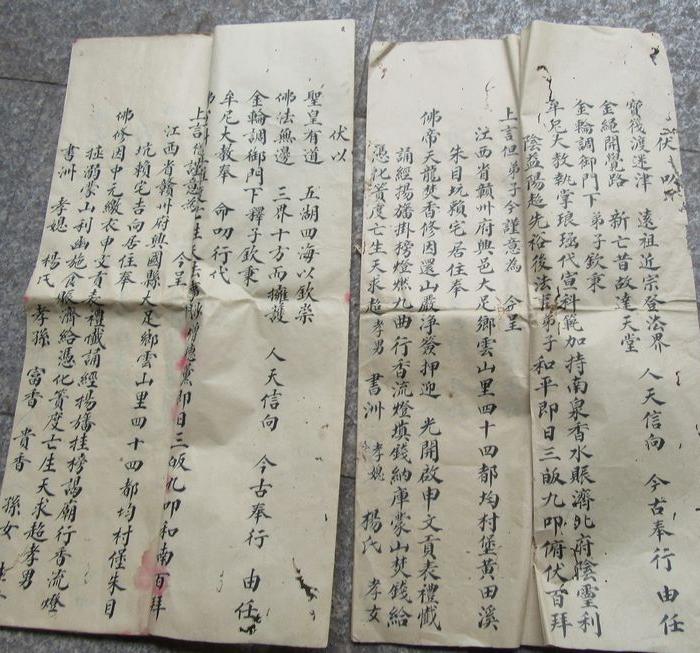 伏
寶筏渡迷津 遠祖近宗登法界 人天信向 今古奉行 由任
金繩開覺路 新亡昔故達天堂
金輪調御門下弟子欽秉
牟尼大教執掌琅瑶代宣科範加持南泉香水賑濟北府陰靈利
陰益陽超先裕後法事弟子和平即日三皈九叩俯伏百拜
上言但弟子今謹意為 今呈
江西省贛州府興邑大足鄉雲山里四十四都均村堡黄田溪
朱目坑賴宅居住奉
佛帝天龍焚香修因還山嚴净發押迎 光開啟申文貢表禮懺
誦經揚旙掛榜燈燃九曲行香流燈填錢納庫蒙山焚錢給
憑化簀度亡生天求超孝男 書洲 孝媳 楊氏 孝女
伏以
聖皇有道 五湖四海以欽崇 人天信向 今古奉行 由任
佛法無邊 三界十方而擁護
金輪調御門下釋子欽秉
牟尼大教奉 命叨行代
即日三皈九叩和南百拜
上言 謹意為 今呈
江西省贛州府興國縣大足鄉雲山里四十四都均村堡朱目
坑賴宅吉向居住奉
佛修因中元繳衣申文貢表禮懺誦經揚旙挂榜謁廟行香流燈
溺蒙山利幽施食賑濟給憑化簀度亡生天求超孝男
書洲 孝媳 楊氏 孝孫 富香 貴香 孫女